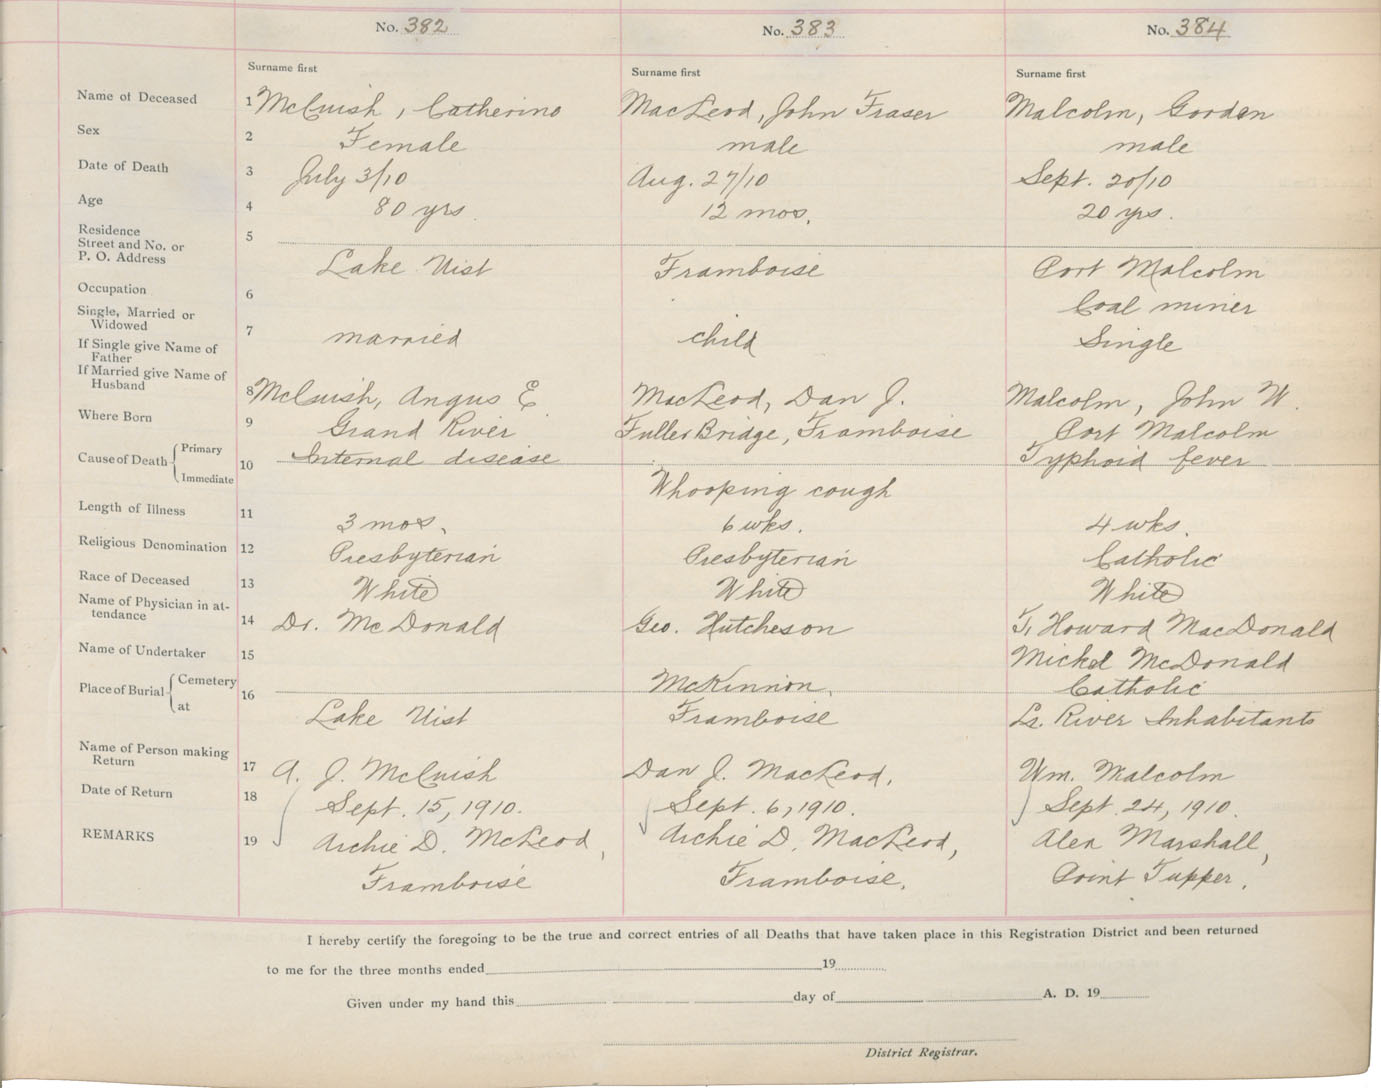 No. 382 No. 383 No. 384
Surname first Surname first Surname first
Name of Deceased 1 McCuish, Catherine MacLeod, John Fraser Malcolm, Gordon
Sex 2 Female male male
Date of Death 3 July 3/10 Aug. 27/10 Sept. 20/10
Age 4 80 yrs. 12 mos. 20 yrs.
Residence
Street and No. or 5
P. O. Address Lake Uist Framboise Port Malcolm
Occupation 6 Coal miner
Single, Married or
Widowed 7 married child Single
If Single give Name of
Father
If Married give Name of
Husband 8 McCuish, Angus E. MacLeod, Dan J. Malcolm, John W.
Where Born 9 Grand River Fuller Bridge, Framboise Port Malcolm
Cause of Death Primary Internal disease Typhoid fever
10 Immediate Whooping cough
Length of Illness 11 3 mos. 6 wks. 4 wks.
Religious Denomination 12 Presbyterian Presbyterian Catholic
Race of Deceased 13 White White White
Name of Physician in at-
tendance 14 Dr. McDonald Geo. Hutcheson T. Howard MacDonald
Name of Undertaker 15 Mickel McDonald
Place of Burial Cemetery 16 McKinnon, Catholic
at Lake Uist Framboise Lr. River Inhabitants
Name of Person making
Return 17 A. J. McCuish Dan J. MacLeod, Wm. Malcolm
Date of Return 18 Sept. 15, 1910. Sept. 6, 1910. Sept. 24, 1910.
REMARKS 19 Archie D. McLeod, Archie D. MacLeod, Alex Marshall,
Framboise Framboise. Point Tupper.
I hereby certify the foregoing to be the true and correct entries of all Deaths that have taken place in this Registration District and been returned
to me for the three months ended 19
Given under my hand this day of A. D. 19
District Registrar.